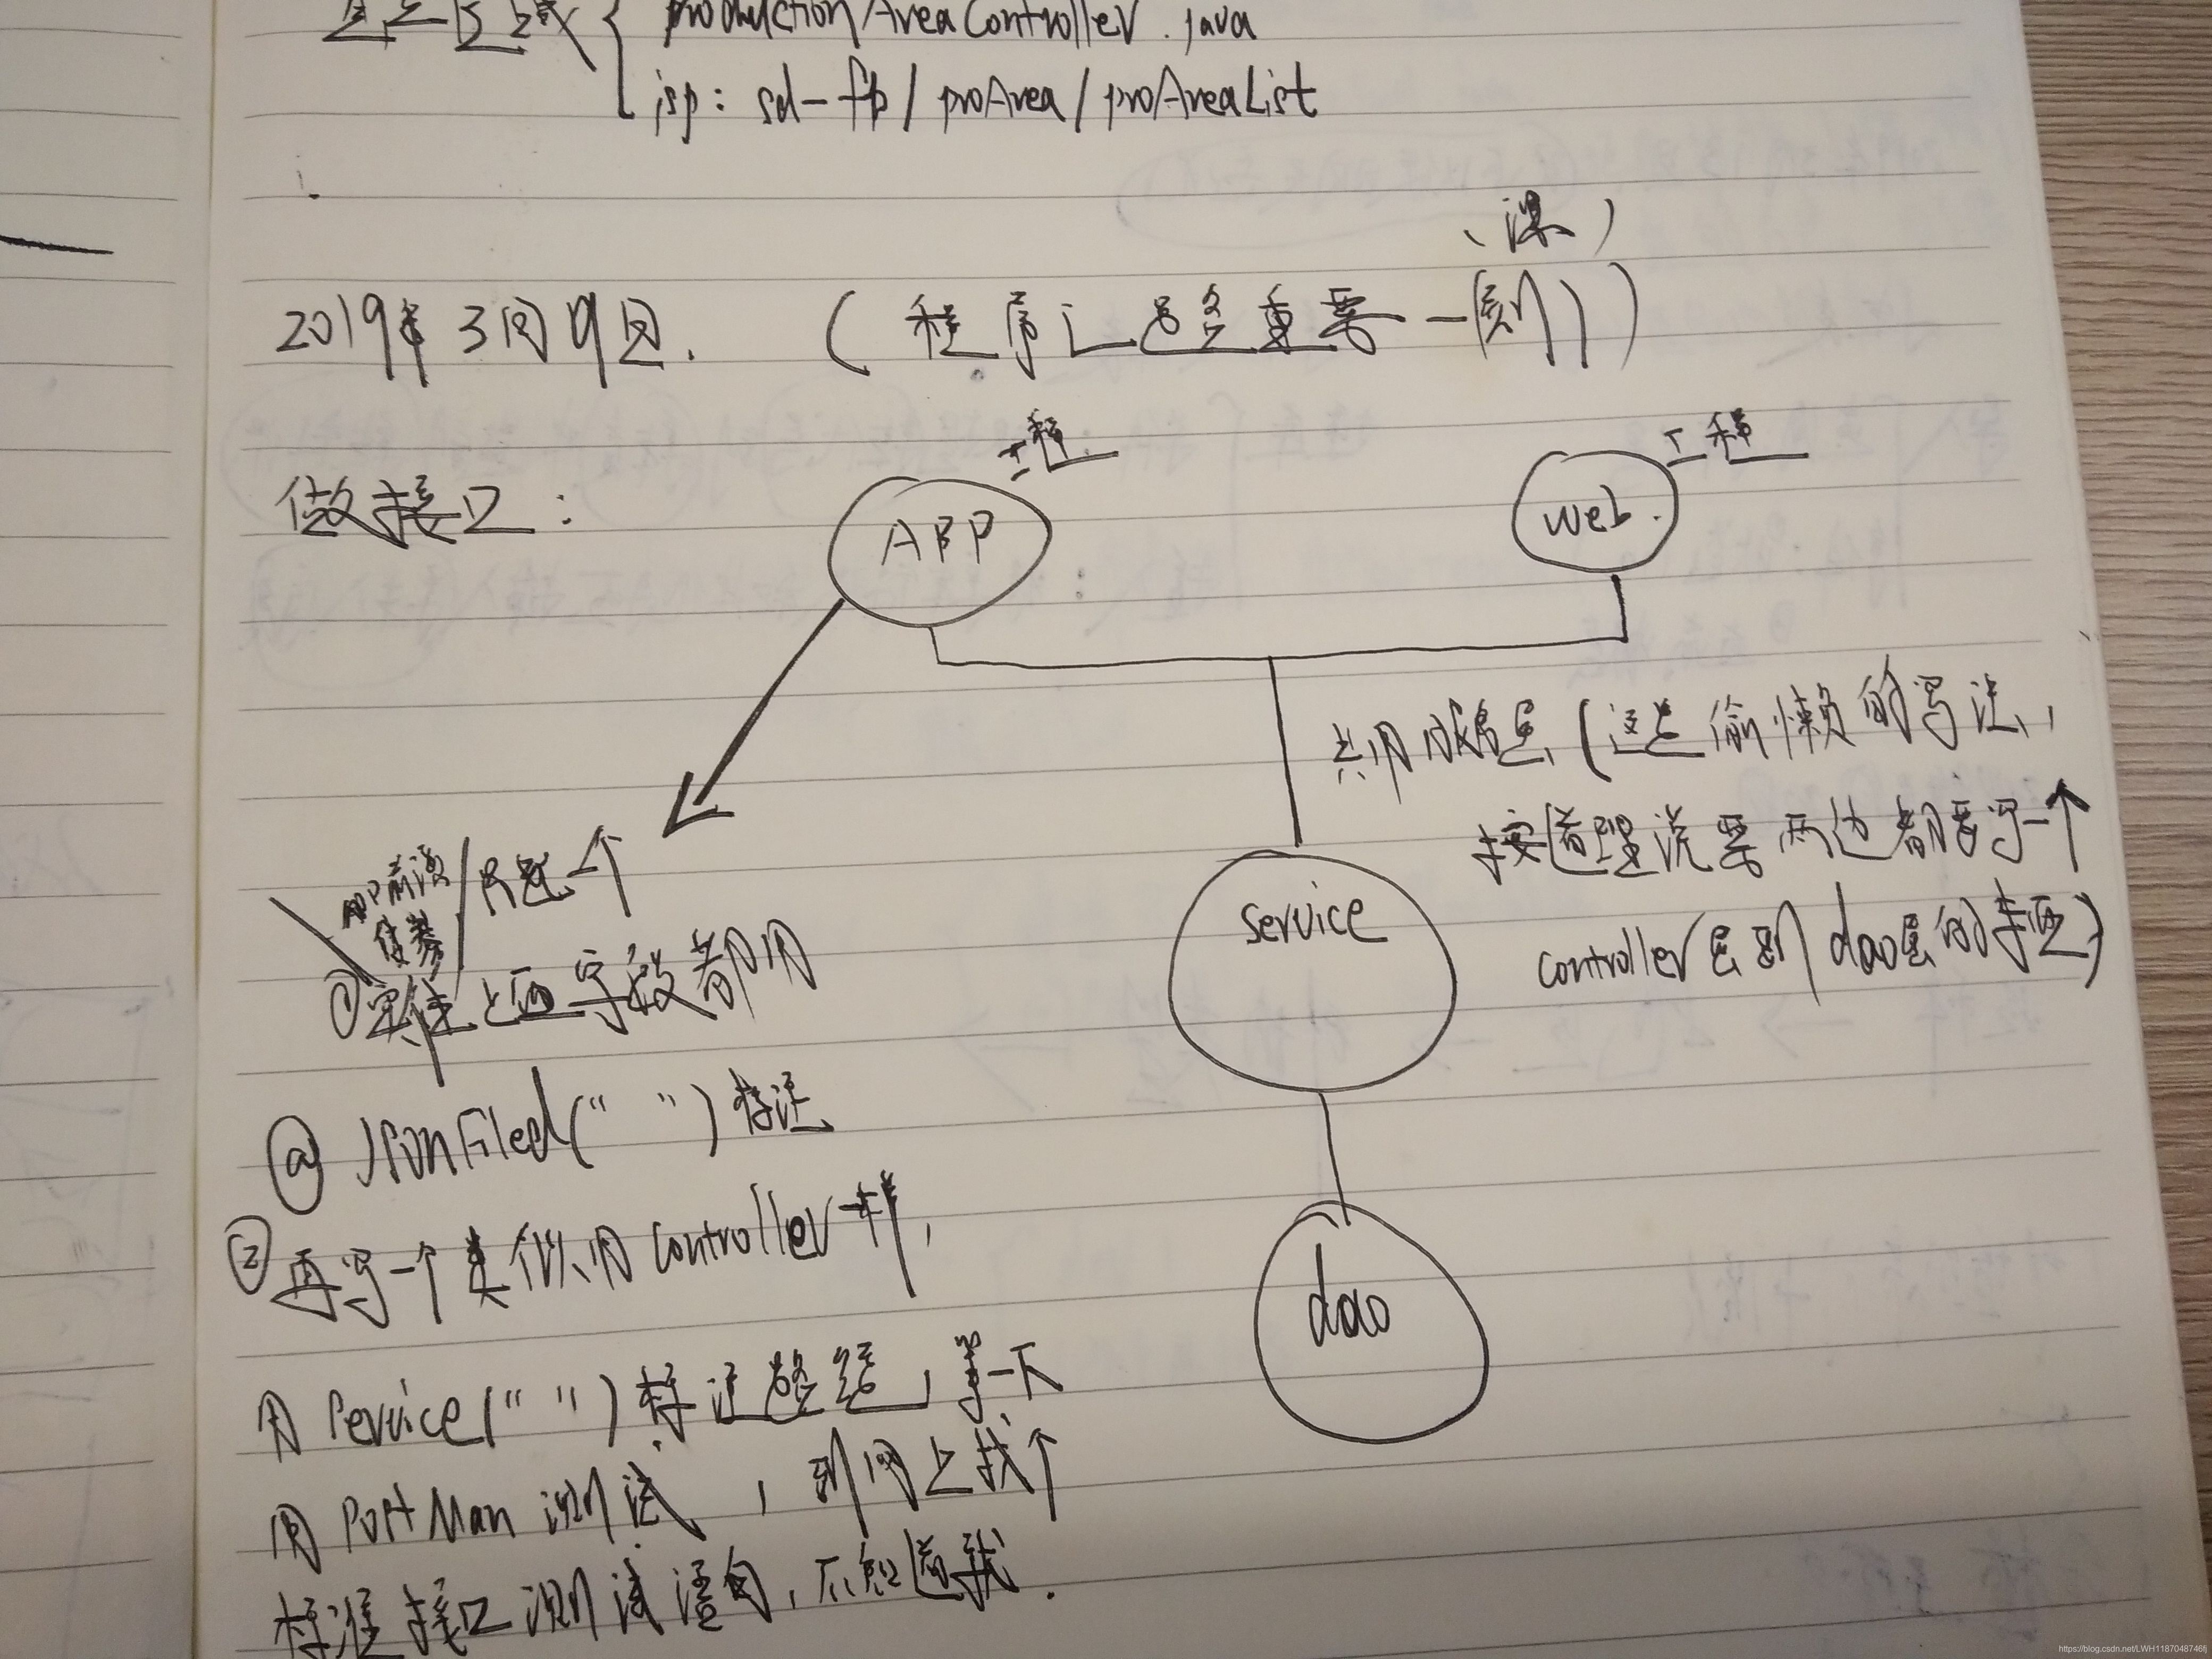 productionAreaController.java
jsp: sd-fb/proArea/proAreaList
(课)
2019年3月9日. (程序 重要一刻)
做接口:
APP
工程
web.
工程
共用服务层(这是偷懒的写法,
按道理说要两边都要写一个
controller层到dao层的东西)
service
dao
APP前端
只是一个
①实体上面字段都用
@JsonFiled(" ")标注
②再写一个类似用controller一样,
用Service(" ")标注路径,等一下
用PostMan测试,到网上找个
标准接口测试语句,不知道我.
https://blog.csdn.net/LWH1187048746fj